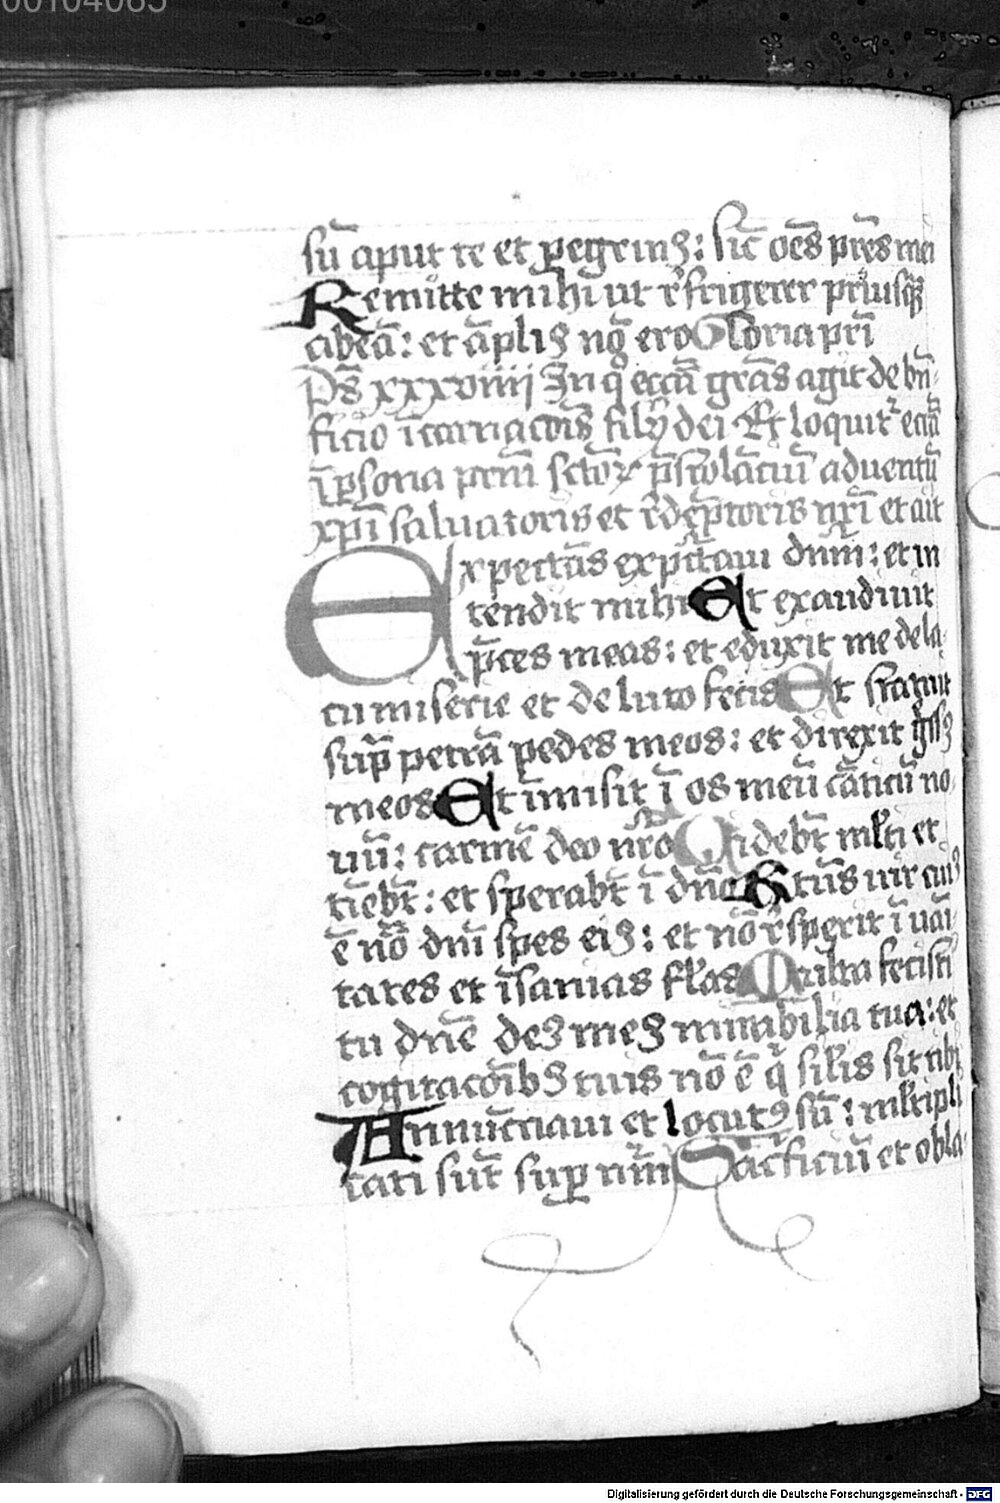 00104085
sū aput te et ꝑegrinꝰ: sic̄ oēs pr̄es mei
Remitte mihi ut refrigerer priusqȝ
abeā: et āpliꝰ nō ero Gloria pr̄i
Ps̄ xxxviiij In q̄ eccīa gr̄as agit de bn̄
ficio īcarnac̄ōis filij dei Et loquit᷑ eccīa
ī ꝑsona
xp̄i saluatoris et redēptoris nr̄i et ait
Expectās expc̄taui dn̄m: et in
tendit mihi Et exaudiuit
p̄ces meas: et eduxit me de la
cu miserie et de luto fecis Et statuit
sup̄ petrā pedes meos: et direxit
meos Et īmisit ī os meū cāticū no
uū: carmē deo nr̄o Uidebt̄ ml̄ti et
tīebt̄: et sperabt̄ ī dn̄o Btūs uir cuiꝰ
ē nōm̄ dn̄i spes eiꝰ: et nō respexit ī uāi
tates et īsanias fl̄as Multa fecisti
tu dn̄e deꝰ meꝰ mirabilia tua: et
cogitac̄ōibꝰ tuis nō ē q̄ sil̄is sit tibi
Annūctiaui et locutꝰ sū: ml̄tipli
cati sūt suꝑ nūm Sac̄ficiū et obla
Digitalisierung gefördert durch die Deutsche Forschungsgemeinschaft - DFG